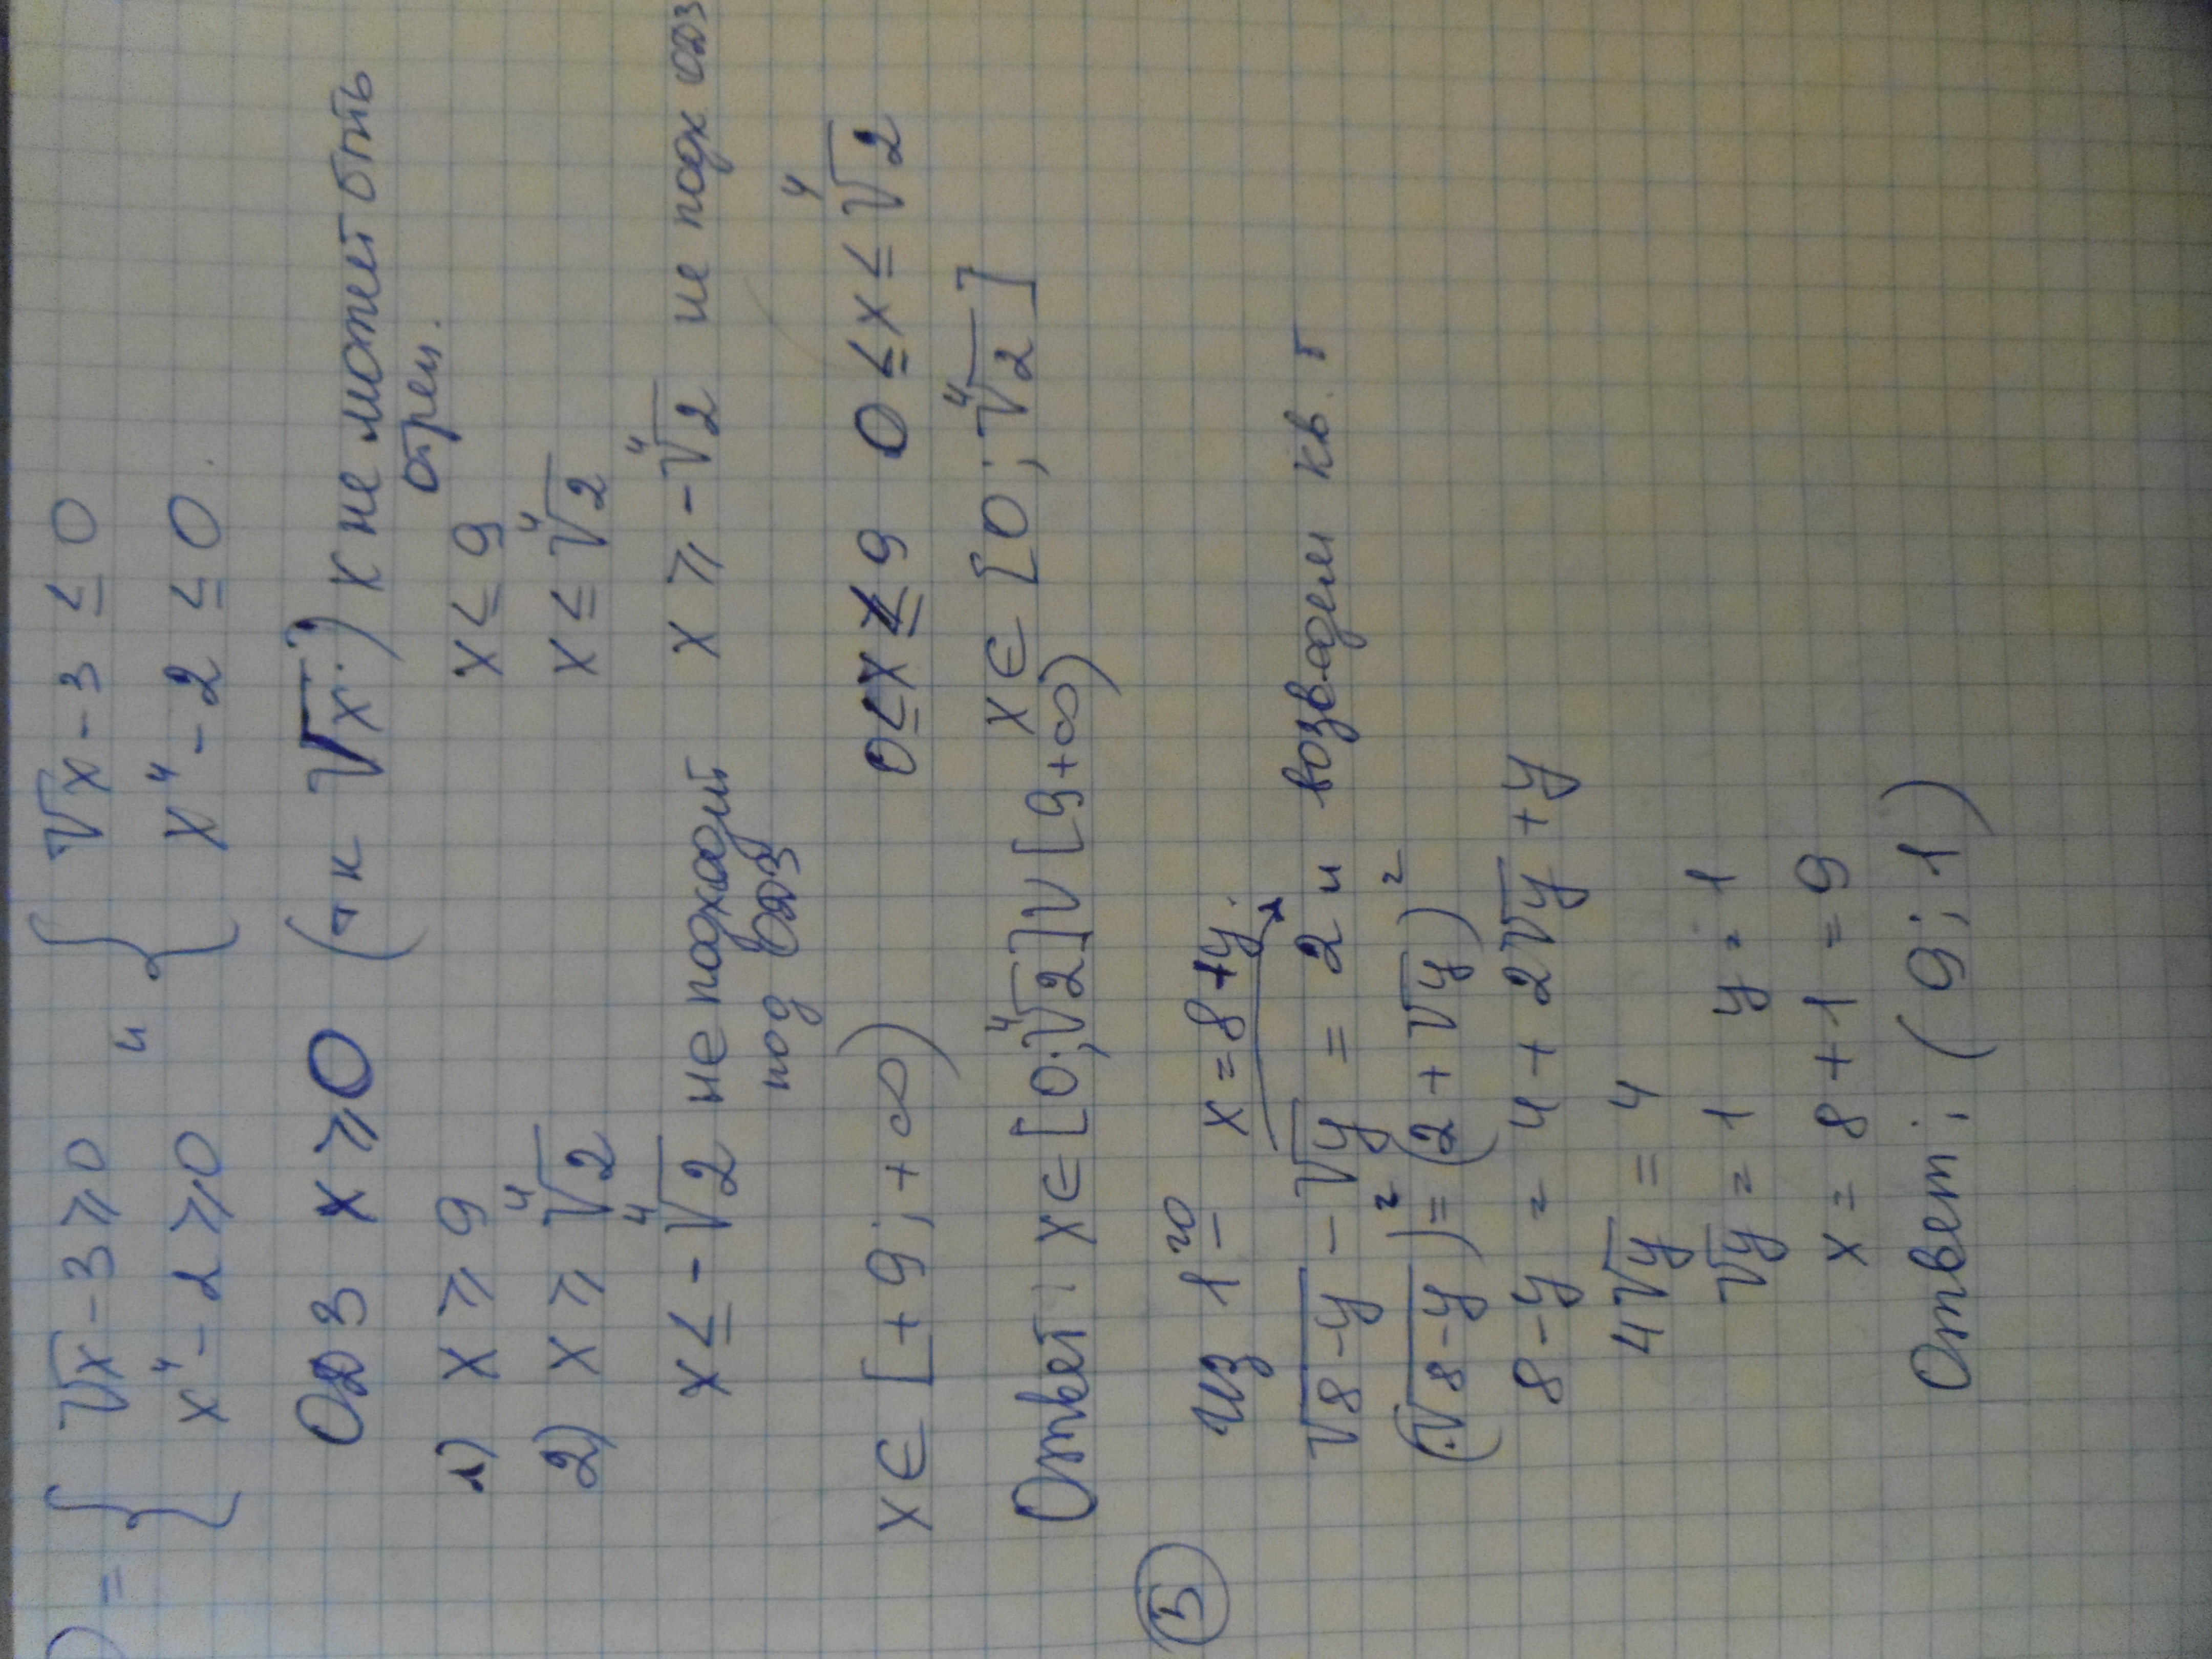 ) = { √x - 3 ≥ 0 и { √x - 3 ≤ 0
x⁴ - 2 ≥ 0 x⁴ - 2 ≤ 0
ОДЗ x ≥ 0 (тк √x) x не может быть
отриц.
1) x ≥ 9 x ≤ 9
2) x ≥ ⁴√2 x ≤ ⁴√2
x ≤ -⁴√2 не подходит x ≥ -⁴√2 не подх ОДЗ
под ОДЗ
x ∈ [+9; +∞) 0 ≤ x ≤ 9 0 ≤ x ≤ ⁴√2
x ∈ [0; ⁴√2]
Ответ: x ∈ [0; ⁴√2] V [9 +∞)
5 из 1го x = 8 + y
√8-y - √y = 2 и возведем кв.
(√8-y)² = (2 + √y)²
8 - y = 4 + 2√y + y
4√y = 4
√y = 1 y = 1
x = 8 + 1 = 9
Ответ: (9; 1)